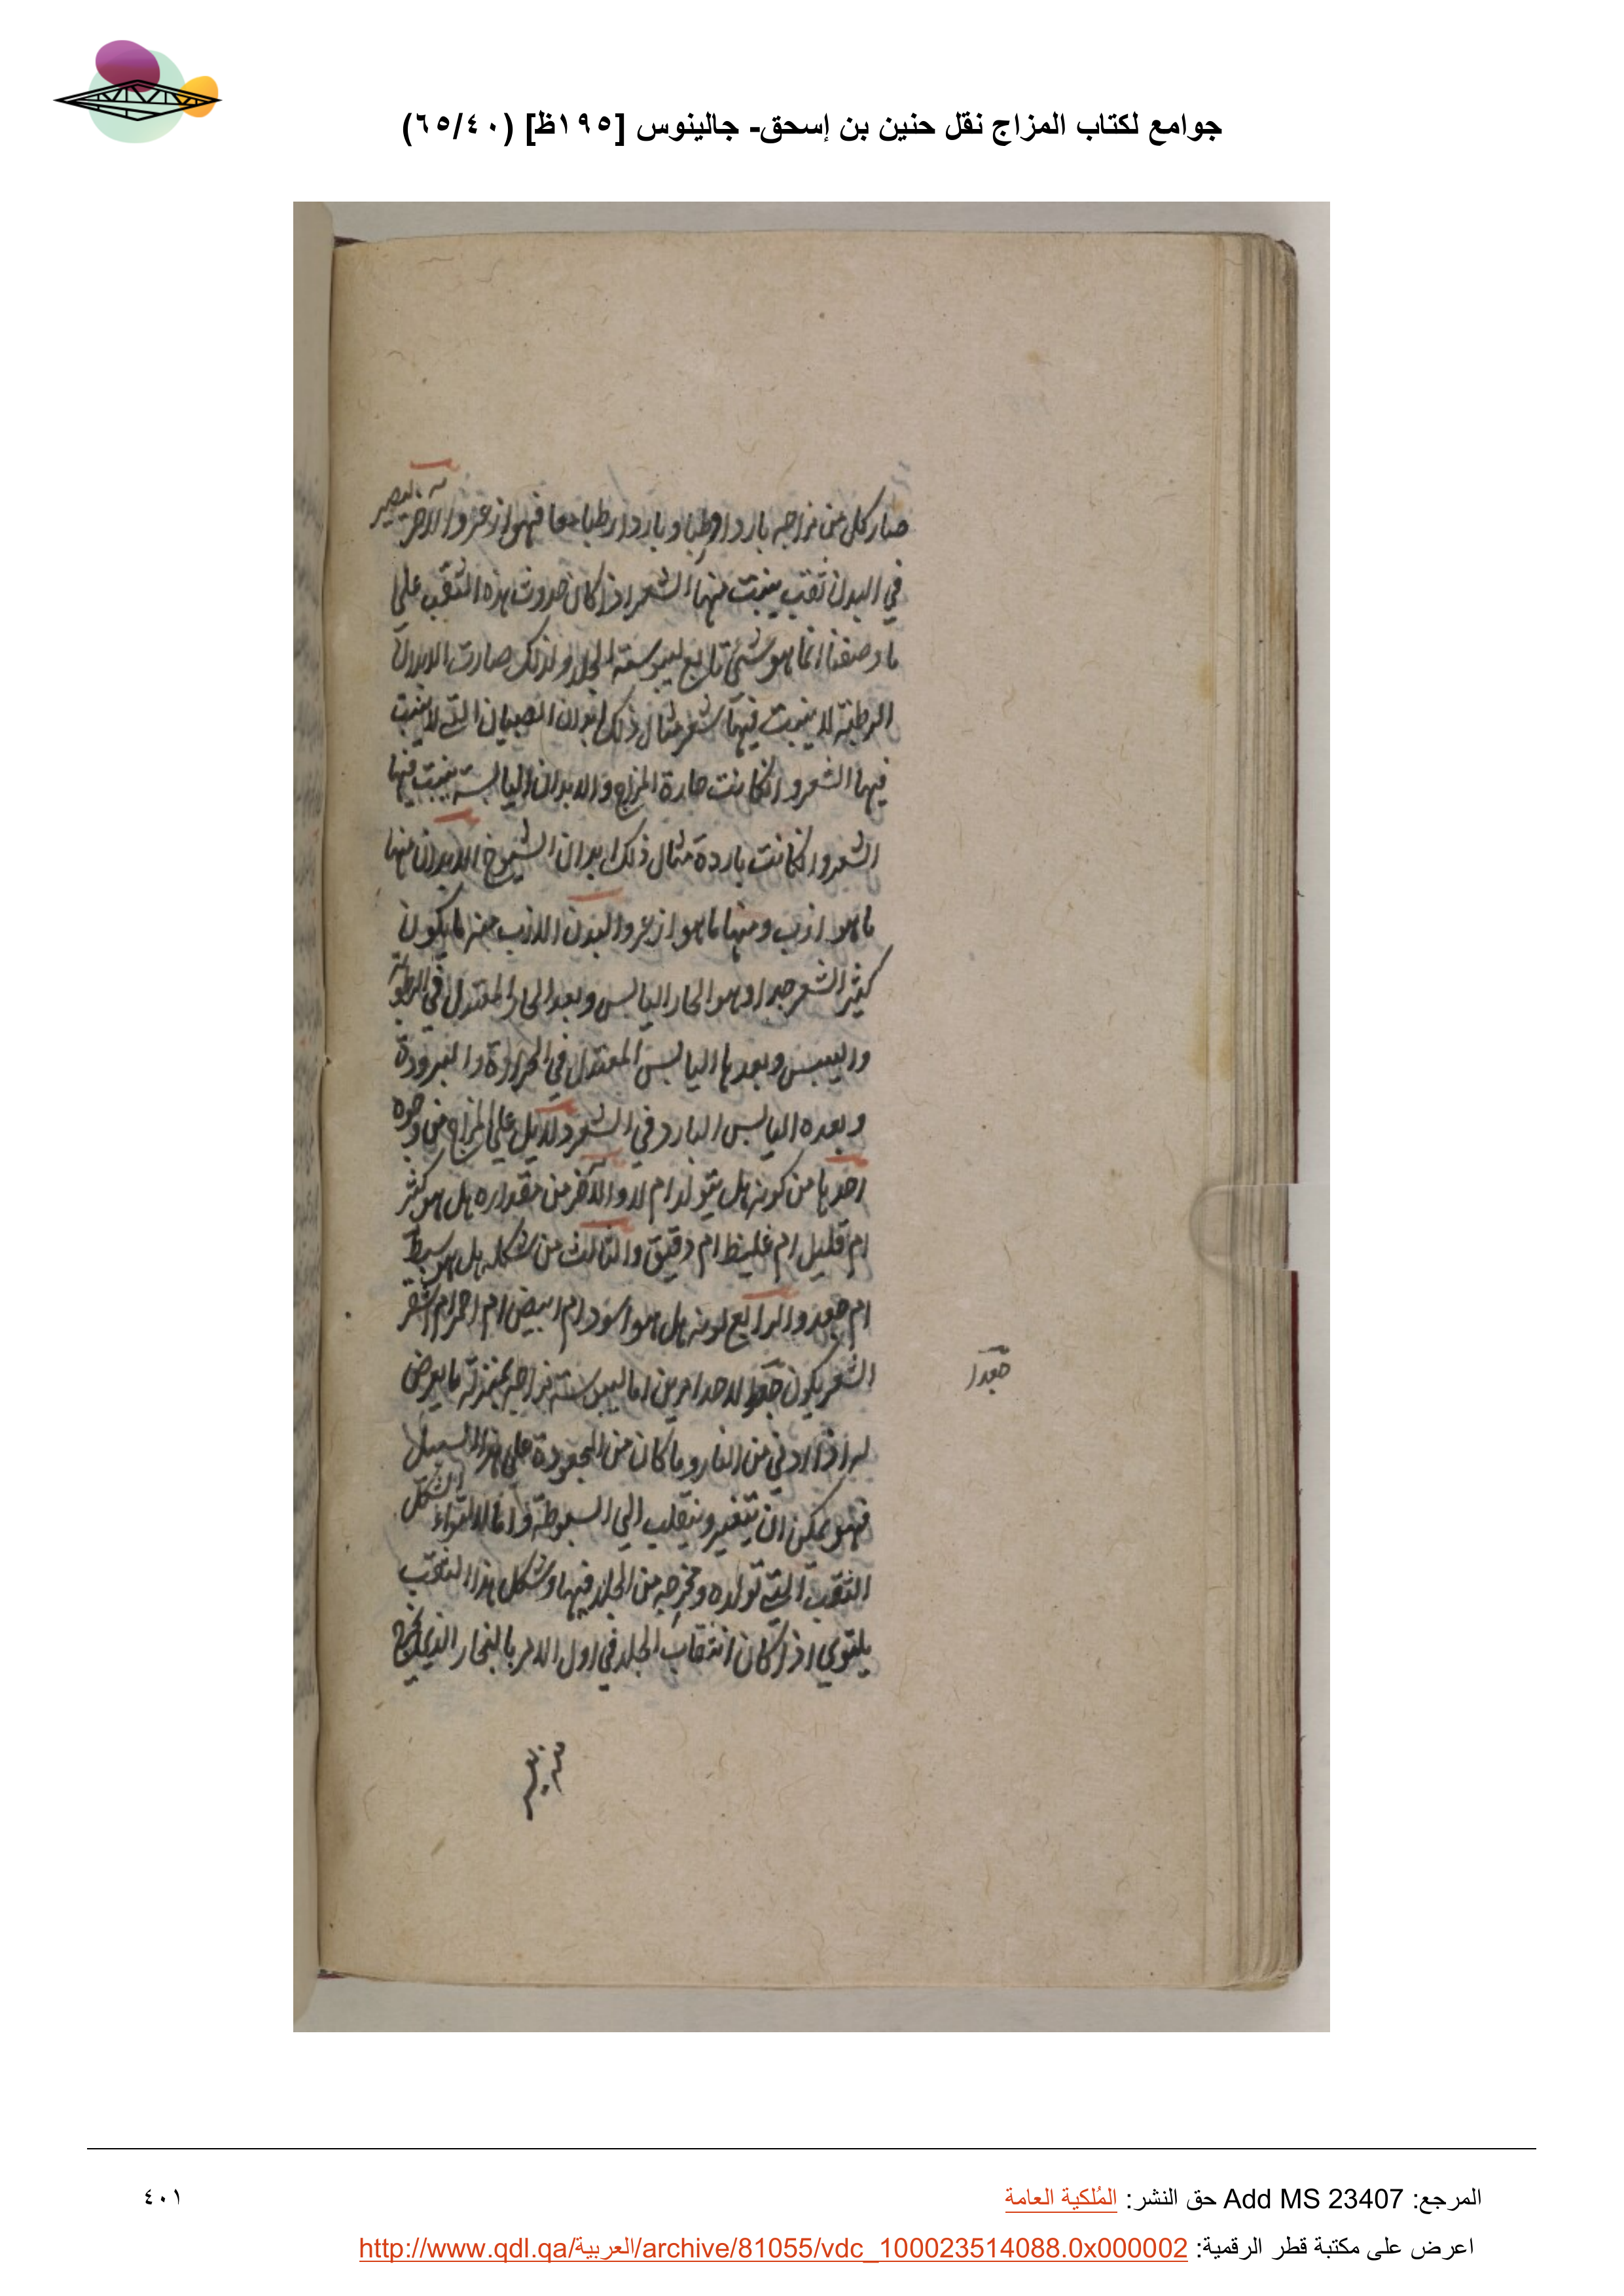 جوامع لكتاب المزاج نقل حنين بن إسحق- جالينوس [١٩٥ظ] (٦٥/٤٠)
صار كل من مزاجه باردا رطبا وباردا رطبا معا فهو ازعر والآخر انه لا تصير
في البدن ثقب ينبت منها الشعر اذا كان حدوث هذه الثقب على
ما وصفنا انما هو شئ تابع ليبوسة الجلد ولذلك صارت الابدان
الرطبة لا ينبت فيها شعر مثال ذلك ابدان الصبيان التي لا ينبت
فيها الشعر وانكانت حارة المزاج والابدان اليابسة ينبت فيها
الشعر وانكانت باردة مثال ذلك ابدان الشيوخ الابدان منها
ما هو ازب ومنها ما هو ازعر والبدن الازب منه ما يكون
كثير الشعر جدا وهو الحار اليابس وبعد الحار المعتدل في الرطوبة
واليبس وبعدها اليابس المعتدل في الحرارة والبرودة
وبعده اليابس البارد في الشعر دلايل على المزاج من وجوه
احدها من كونه هل يتولد ام لا والآخر من مقداره هل هو كثير
ام قليل ام غليظ ام دقيق والثالث من شكله هل هو سبط
ام جعد والرابع لونه هل هو اسود ام ابيض ام احمر ام اشقر
الشعر يكون جعدا لاحد امرين اما ليبوسة مزاجه بمنزلة ما يعرض
جعدا
له اذا ادني من النار وما كان من الجعودة على هذا السبيل
فهو يمكن ان يتغير وينقلب الى السبوطة واما لالتواء الشكل
الثقب التي تولده ومخرجه من الجلد فيها وشكل هذا الثقب
يلتوي اذا كان انثقاب الجلد في اول الامر بالبخار الذي يخرج
المرجع: Add MS 23407 حق النشر: المُلكية العامة
٤٠١
اعرض على مكتبة قطر الرقمية: http://www.qdl.qa/العربية/archive/81055/vdc_100023514088.0x000002